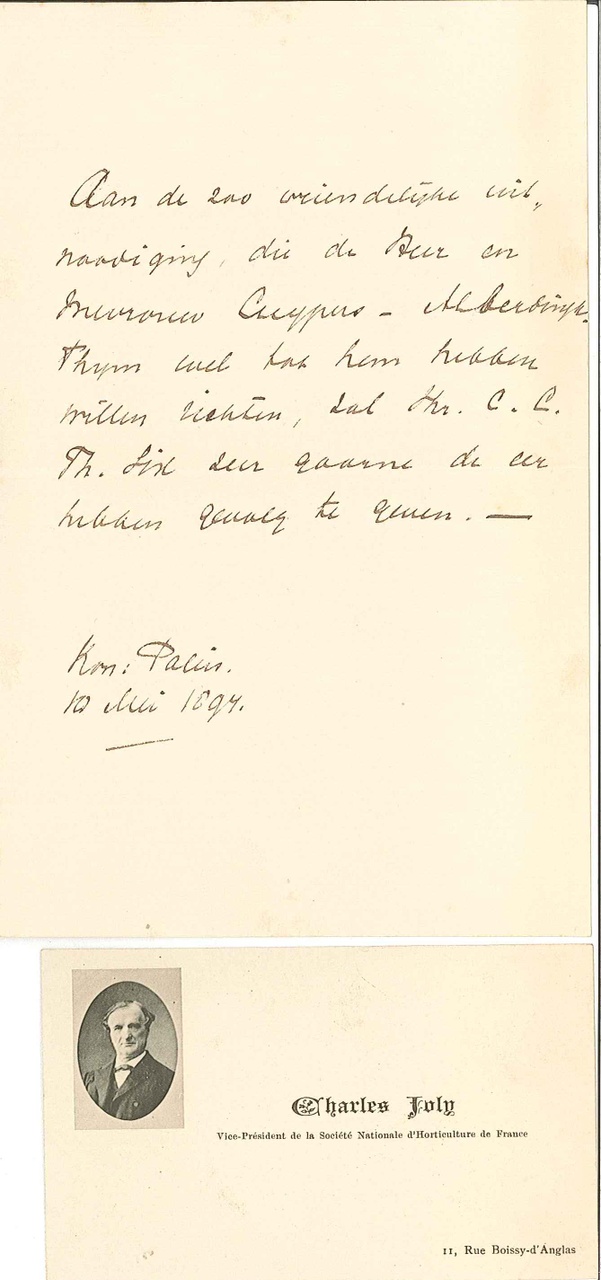 Aan de zoo vriendelijke uit„
noodiging, die de Heer en
Mevrouw Cuypers – Alberdingk-
Thym wel tot hem hebben
willen richten, zal Jhr. C. C.
Th. Six zeer gaarne de eer
hebben gevolg te geven. —
Kon: Paleis.
10 Mei 1894.
Charles Joly
Vice-Président de la Société Nationale d'Horticulture de France
11, Rue Boissy-d'Anglas